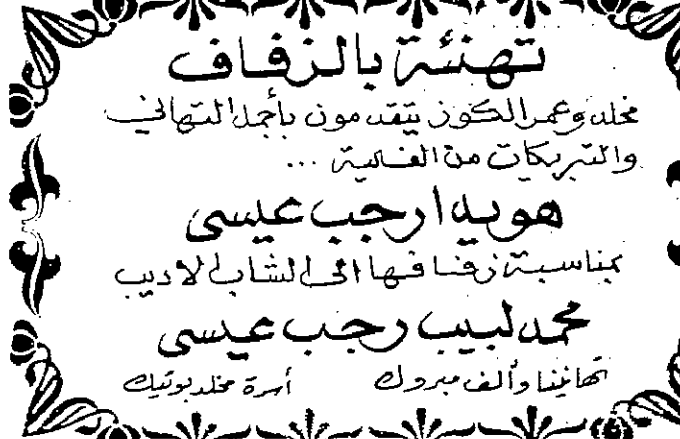 تهنئة بالزفاف
مخلد وعمر الكوز يتقدمون بأجمل التهاني
والتبريكات من الغالية ...
هويدا رجب عيسى
بمناسبة زفافها الى الشاب الاديب
محمد لبيب رجب عيسى
تهانينا وألف مبروك
أسرة مخلد بوتيك